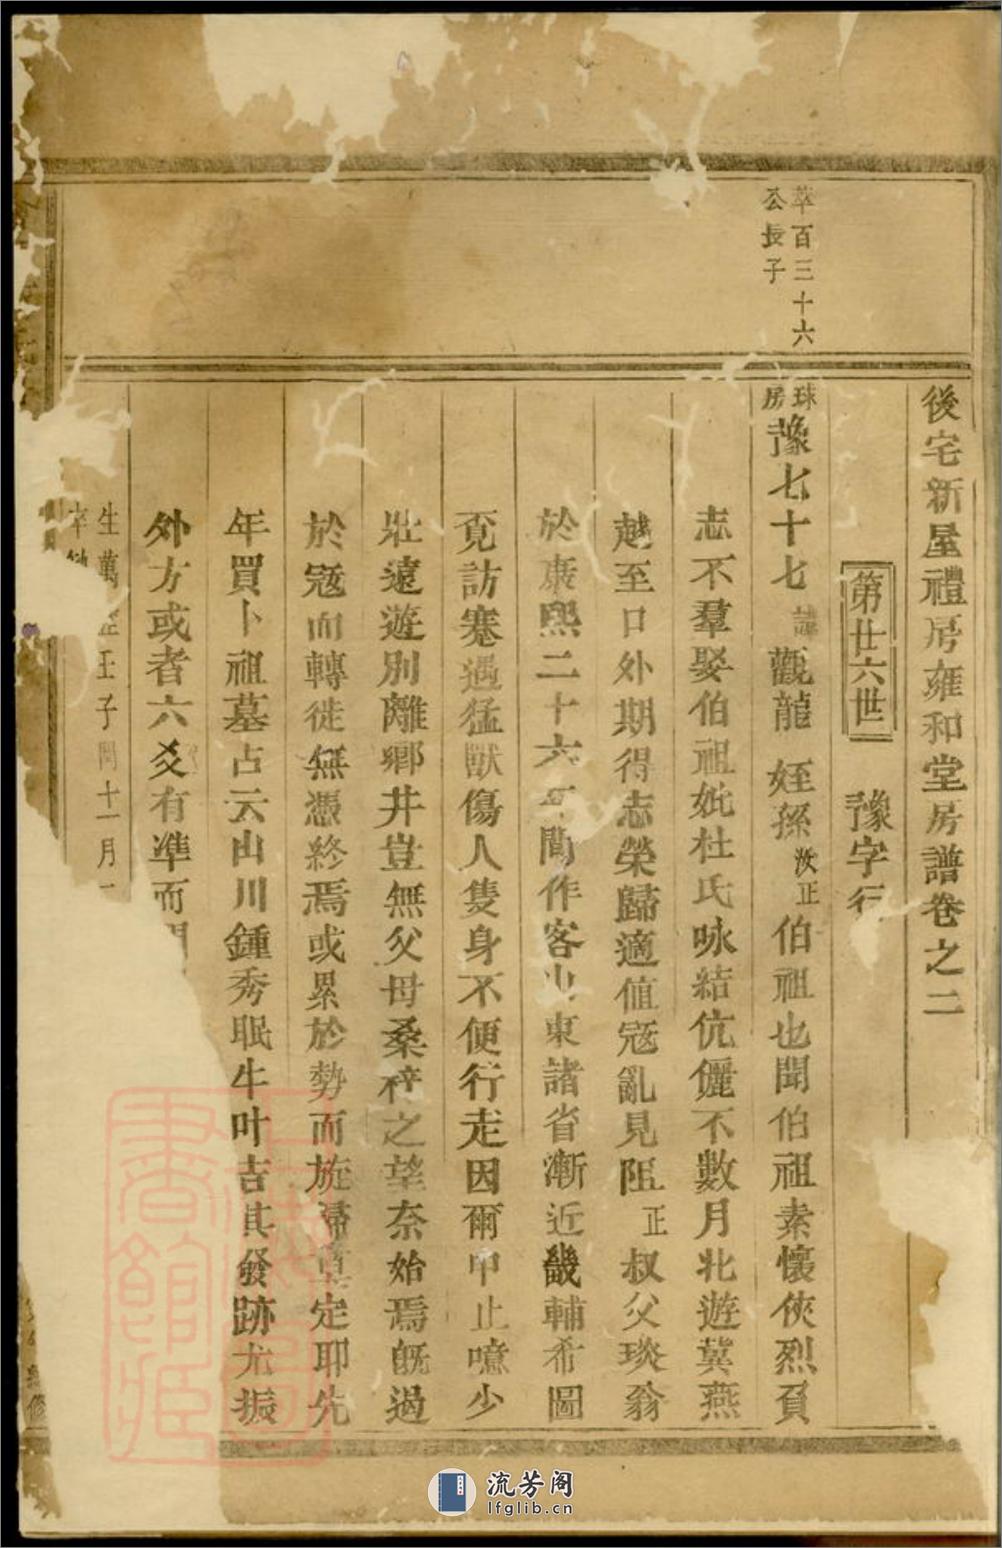 後宅新屋禮房雍和堂房譜卷之二
第廿六世 豫字行
萃百三十六
公長子
球房豫七十七 諱 觀龍 姪孫 汝正 伯祖也聞伯祖素懷俠烈負
志不羣娶伯祖妣杜氏咏結伉儷不數月北遊冀燕
越至口外期得志榮歸適值寇亂見阻 正 叔父琰翁
於康熙二十六年間作客山東諸省漸近畿輔希圖
覓訪蹇遇猛獸傷人隻身不便行走因爾中止噫少
壯遠遊別離鄉井豈無父母桑梓之望奈始焉旣遏
於寇而轉徙無憑終焉或累於勢而旋歸莫定耶先
年買卜祖墓占云山川鍾秀眠牛叶吉其發跡尤振
外方或者六爻有準而
生萬 壬子閏十一月
卒
流芳阁
lfglib.cn